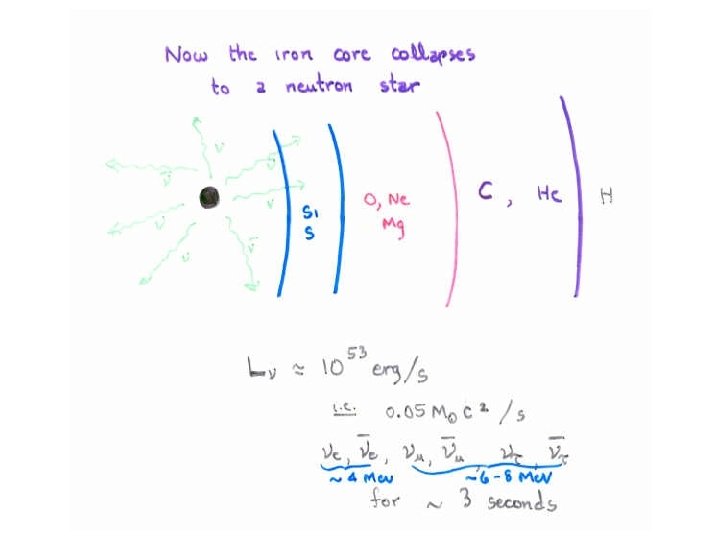 Now the iron core collapses
to a neutron star
ν
ν̄
ν̄
ν
ν
ν̄
Si
S
O, Ne
Mg
C, He
H
L_ν ≈ 10^53 erg/s
i.e. 0.05 M⊙ c² /s
ν_e, ν̄_e, ν_μ, ν̄_μ ν_τ, ν̄_τ
~4 MeV ~6-8 MeV
for ~ 3 seconds